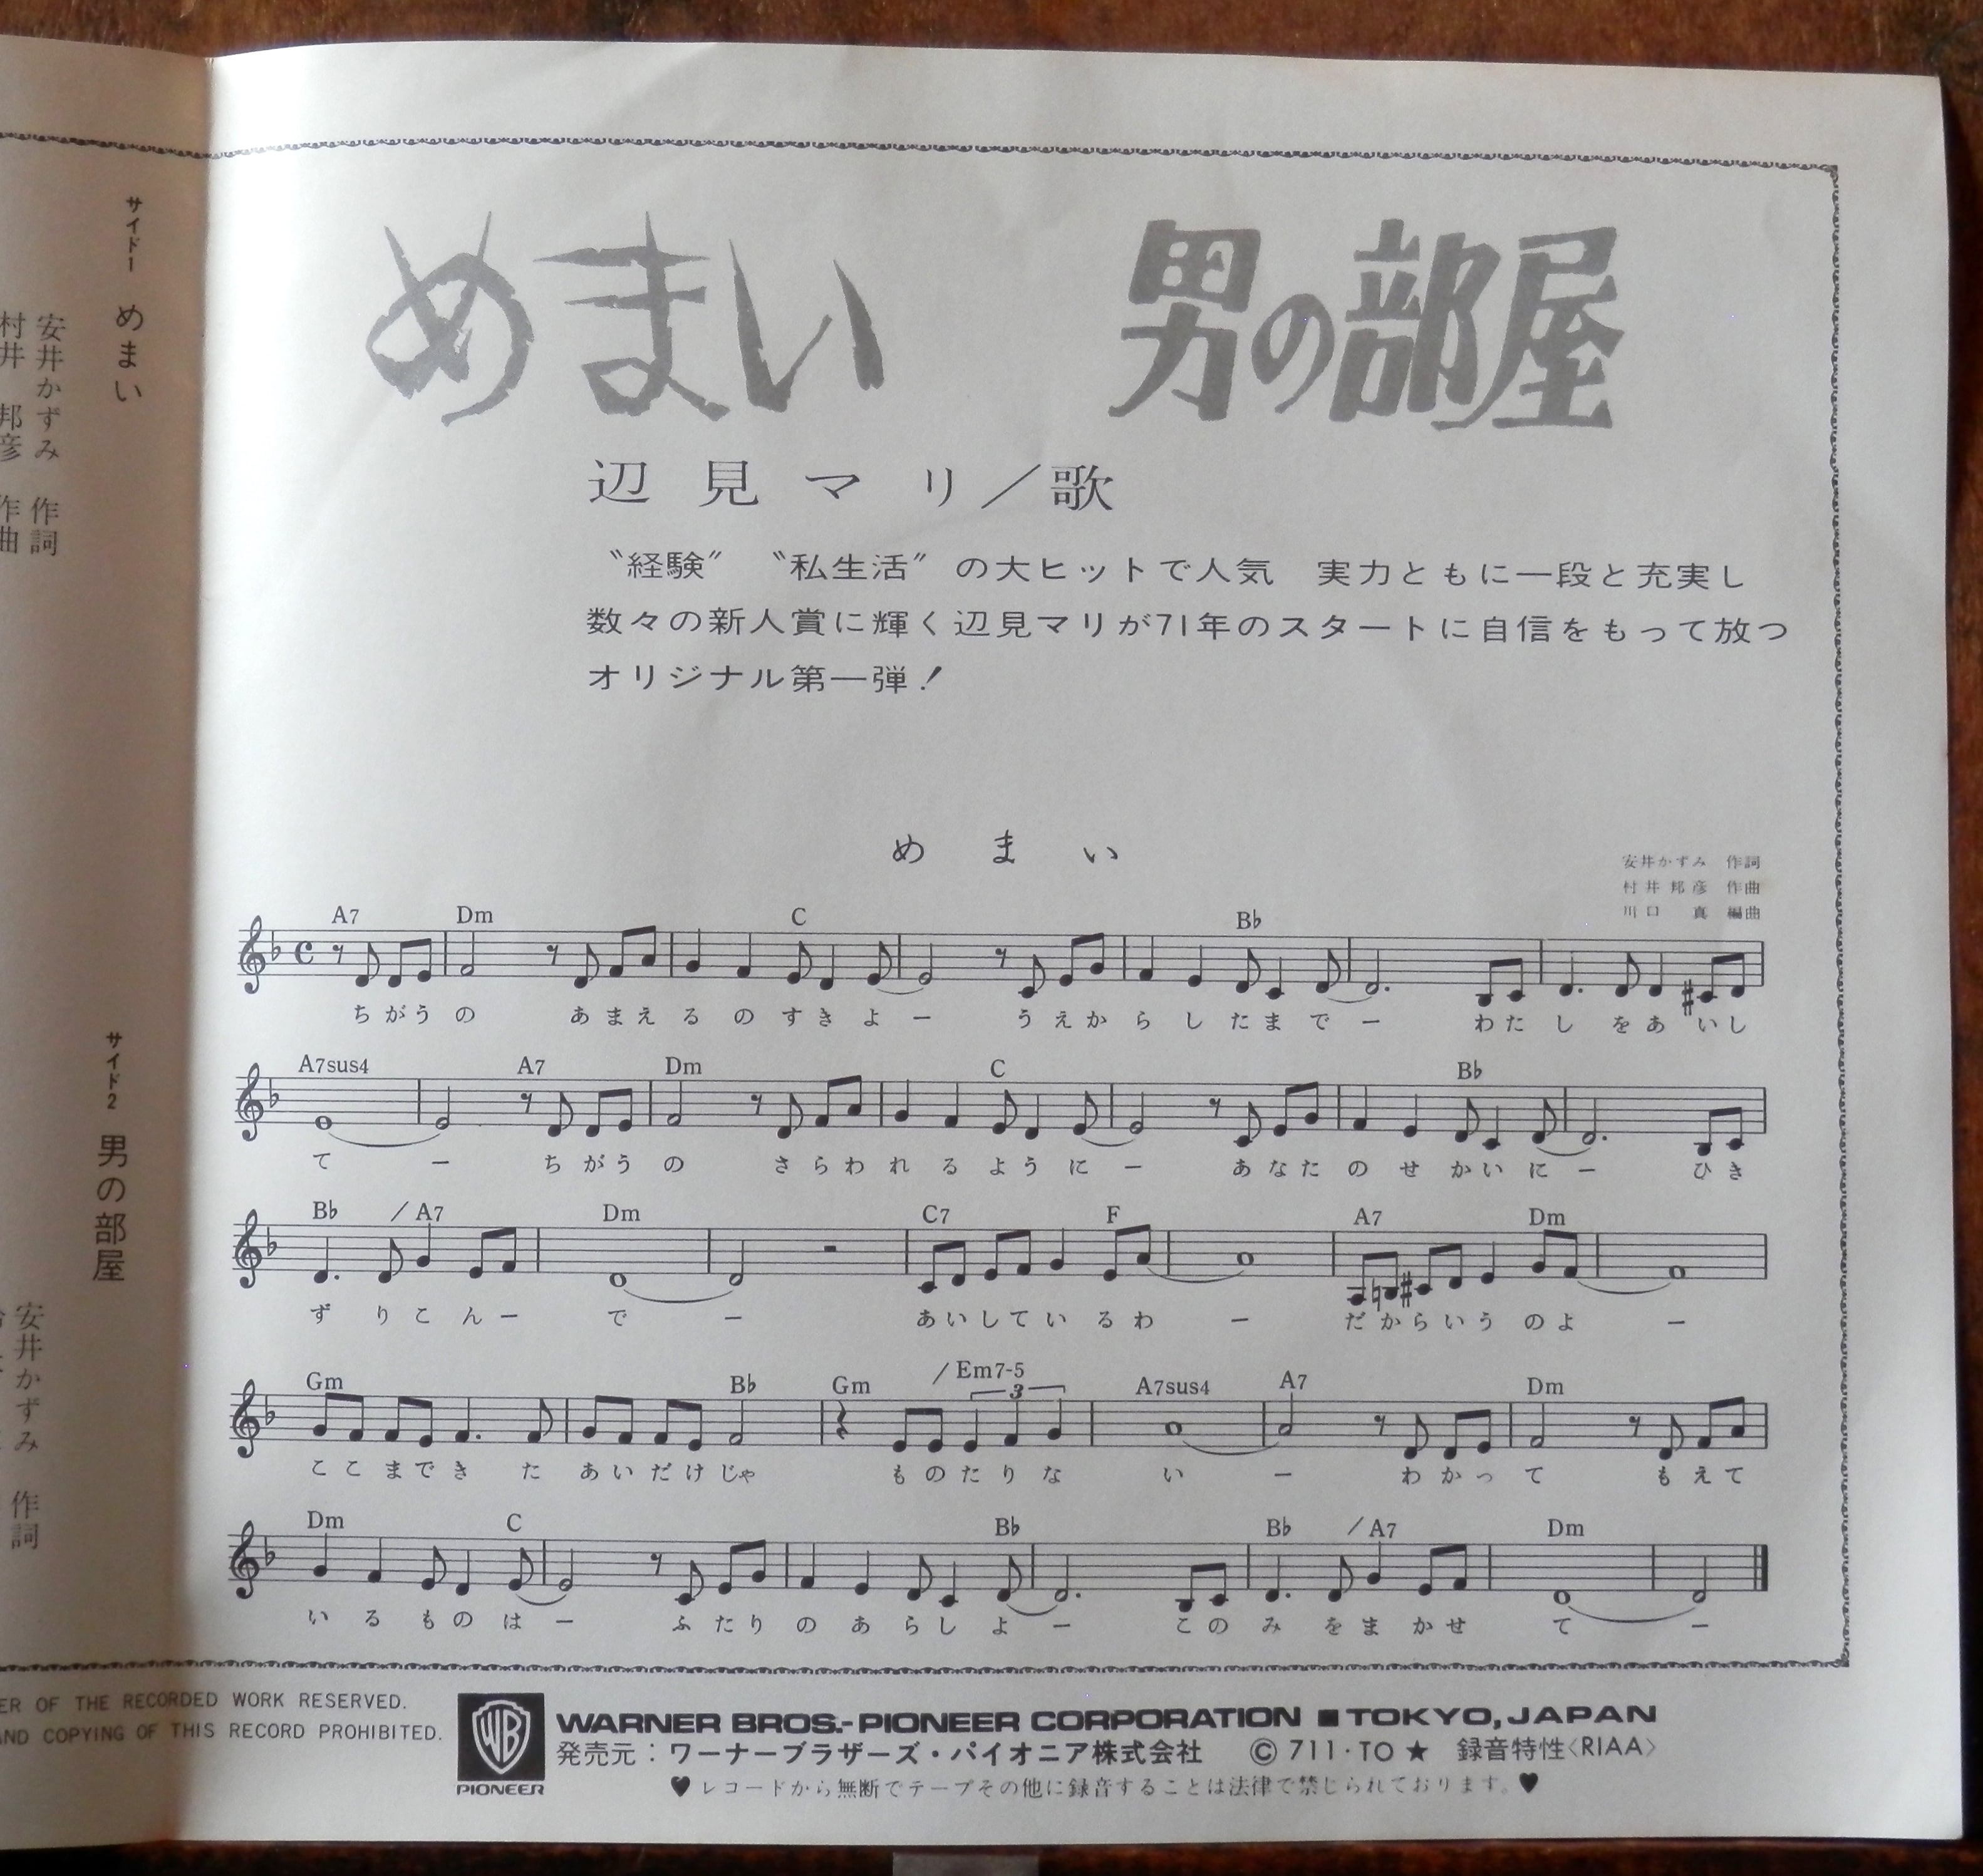 サイド1 めまい
安井かずみ 作詞
村井 邦彦 作曲
サイド2 男の部屋
安井かずみ 作詞
めまい 男の部屋
辺見マリ／歌
〝経験〞 〝私生活〞の大ヒットで人気 実力ともに一段と充実し
数々の新人賞に輝く辺見マリが71年のスタートに自信をもって放つ
オリジナル第一弾！
めまい
安井かずみ 作詞
村井邦彦 作曲
川口 真 編曲
A7 Dm C B♭
ちがうの あまえるのすきよー うえからしたまでー わたしをあいし
A7sus4 A7 Dm C B♭
てー ちがうの さらわれるようにー あなたのせかいにー ひき
B♭ ／A7 Dm C7 F A7 Dm
ずりこんー でー あいしているわー だからいうのよー
Gm B♭ Gm ／Em7-5 A7sus4 A7 Dm
3
ここまできた あいだけじゃ ものたりない ー わかって もえて
Dm C B♭ B♭ ／A7 Dm
いるものはー ふたりのあらしよー このみをまかせ てー
ER OF THE RECORDED WORK RESERVED.
AND COPYING OF THIS RECORD PROHIBITED.
WB
PIONEER
WARNER BROS.-PIONEER CORPORATION ■ TOKYO, JAPAN
発売元：ワーナーブラザーズ・パイオニア株式会社 © 711・TO ★ 録音特性〈RIAA〉
♥レコードから無断でテープその他に録音することは法律で禁じられております。♥